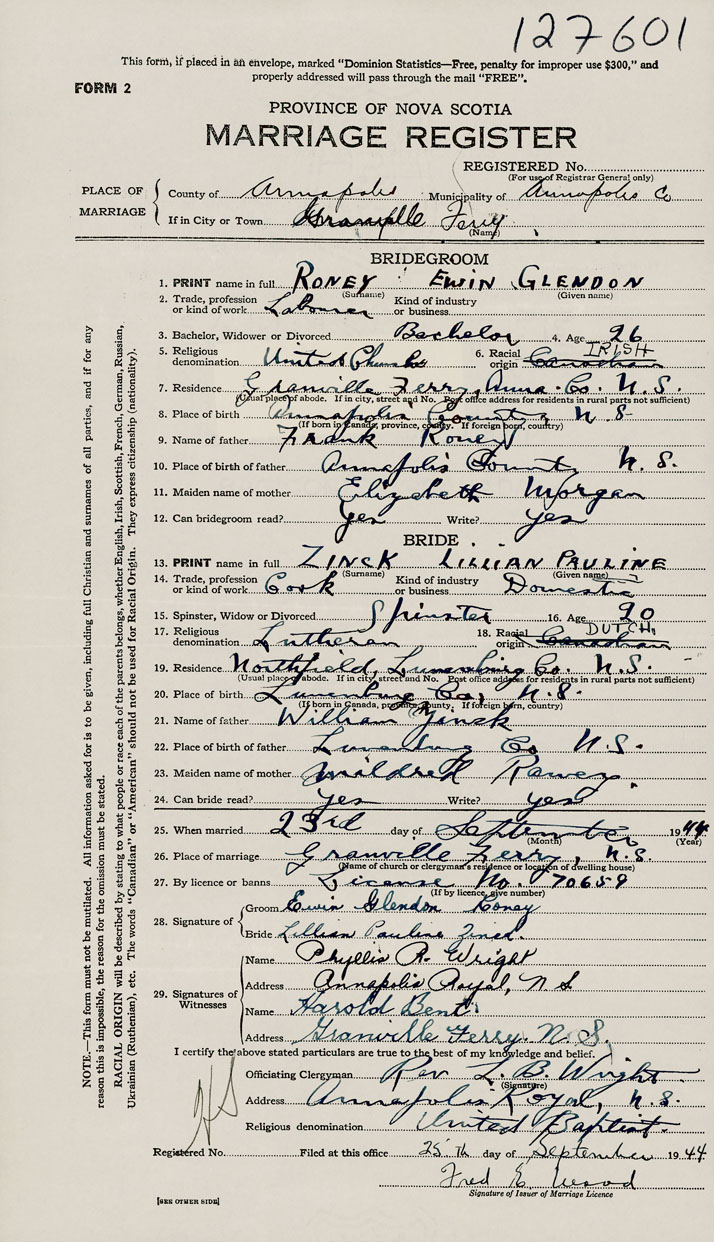 127601
This form, if placed in an envelope, marked "Dominion Statistics—Free, penalty for improper use $300," and
properly addressed will pass through the mail "FREE".
FORM 2
PROVINCE OF NOVA SCOTIA
MARRIAGE REGISTER
REGISTERED No.
(For use of Registrar General only)
PLACE OF MARRIAGE
County of Annapolis Municipality of Annapolis Co
If in City or Town Granville Ferry
(Name)
BRIDEGROOM
1. PRINT name in full RONEY EWIN GLENDON
(Surname) (Given name)
2. Trade, profession or kind of work Labourer Kind of industry or business
3. Bachelor, Widower or Divorced Bachelor 4. Age 26
5. Religious denomination United Church 6. Racial origin Canadian IRISH
7. Residence Granville Ferry, Anna. Co. N.S.
(Usual place of abode. If in city, street and No. Post office address for residents in rural parts not sufficient)
8. Place of birth Annapolis County, N.S
(If born in Canada, province, county. If foreign born, country)
9. Name of father Frank Roney
10. Place of birth of father Annapolis County N.S.
11. Maiden name of mother Elizabeth Morgan
12. Can bridegroom read? yes Write? yes
BRIDE
13. PRINT name in full ZINCK LILLIAN PAULINE
(Surname) (Given name)
14. Trade, profession or kind of work Cook Kind of industry or business Domestic
15. Spinster, Widow or Divorced Spinster 16. Age 20
17. Religious denomination Lutheran 18. Racial origin Canadian DUTCH
19. Residence Northfield, Lunenburg Co. N.S.
(Usual place of abode. If in city, street and No. Post office address for residents in rural parts not sufficient)
20. Place of birth Lunenburg Co, N.S.
(If born in Canada, province, county. If foreign born, country)
21. Name of father William Zinck
22. Place of birth of father Lunenburg Co N.S.
23. Maiden name of mother Mildred
24. Can bride read? yes Write? yes
25. When married 23rd day of September 1944
(Month) (Year)
26. Place of marriage Granville Ferry, N.S.
(Name of church or clergyman's residence or location of dwelling house)
27. By licence or banns License No. 70659
(If by licence, give number)
28. Signature of
Groom Ewin Glendon Roney
Bride Lillian Pauline Zinck.
29. Signatures of Witnesses
Name Phyllis R. Wright
Address Annapolis Royal, N S
Name Harold Bent
Address Granville Ferry. N.S.
I certify the above stated particulars are true to the best of my knowledge and belief.
Officiating Clergyman Rev. L. B. Wright
(Signature)
Address Annapolis Royal, N.S.
Religious denomination United Baptist.
Registered No. Filed at this office 25th day of September 1944
Fred E. Wood
Signature of Issuer of Marriage Licence
[SEE OTHER SIDE]
NOTE.—This form must not be mutilated. All information asked for is to be given, including full Christian and surnames of all parties, and if for any
reason this is impossible, the reason for the omission must be stated.
RACIAL ORIGIN will be described by stating to what people or race each of the parents belongs, whether English, Irish, Scottish, French, German, Russian,
Ukrainian (Ruthenian), etc. The words "Canadian" or "American" should not be used for Racial Origin. They express citizenship (nationality).